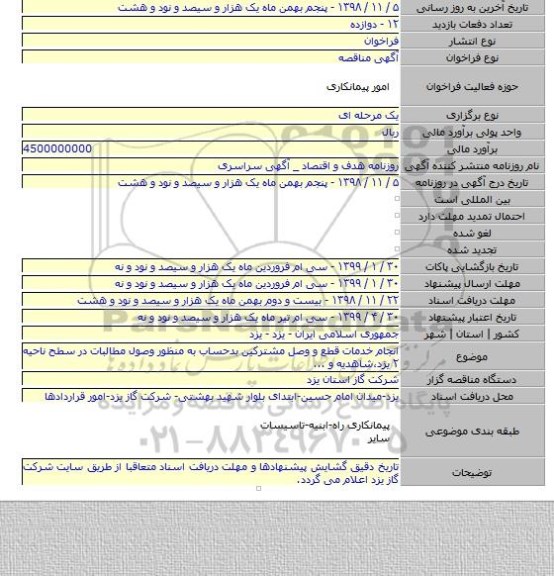 تاریخ آخرین به روز رسانی ۵ / ۱۱ / ۱۳۹۸ - پنجم بهمن ماه یک هزار و سیصد و نود و هشت
تعداد دفعات بازدید ۱۲ - دوازده
نوع انتشار فراخوان
نوع فراخوان آگهی مناقصه
حوزه فعالیت فراخوان امور پیمانکاری
نوع برگزاری یک مرحله ای
واحد پولی برآورد مالی ریال
برآورد مالی 4500000000
نام روزنامه منتشر کننده آگهی روزنامه هدف و اقتصاد _ آگهی سراسری
تاریخ درج آگهی در روزنامه ۵ / ۱۱ / ۱۳۹۸ - پنجم بهمن ماه یک هزار و سیصد و نود و هشت
بین المللی است
احتمال تمدید مهلت دارد
لغو شده
تجدید شده
تاریخ بازگشایی پاکات ۳۰ / ۱ / ۱۳۹۹ - سی ام فروردین ماه یک هزار و سیصد و نود و نه
مهلت ارسال پیشنهاد ۳۰ / ۱ / ۱۳۹۹ - سی ام فروردین ماه یک هزار و سیصد و نود و نه
مهلت دریافت اسناد ۲۲ / ۱۱ / ۱۳۹۸ - بیست و دوم بهمن ماه یک هزار و سیصد و نود و هشت
تاریخ اعتبار پیشنهاد ۳۰ / ۴ / ۱۳۹۹ - سی ام تیر ماه یک هزار و سیصد و نود و نه
کشور | استان | شهر جمهوری اسلامی ایران - یزد - یزد
موضوع انجام خدمات قطع و وصل مشترکین بدحساب به منظور وصول مطالبات در سطح ناحیه
۲ یزد،شاهدیه و ...
دستگاه مناقصه گزار شرکت گاز استان یزد
محل دریافت اسناد یزد-میدان امام حسین-ابتدای بلوار شهید بهشتی- شرکت گاز یزد-امور قراردادها
طبقه بندی موضوعی پیمانکاری راه-ابنیه-تاسیسات
سایر
توضیحات تاریخ دقیق گشایش پیشنهادها و مهلت دریافت اسناد متعاقبا از طریق سایت شرکت
گاز یزد اعلام می گردد.
ParsNamadData
پایگاه اطلاع رسانی مناقصه و مزایده
۰۲۱-۸۸۳۴۹۶۷۰-۵